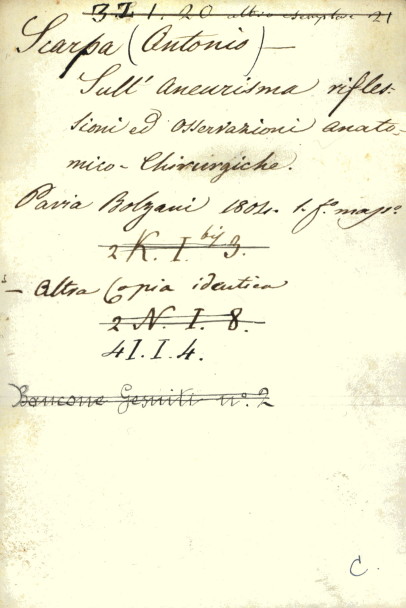 3Z 1. 20 altro esemplare 21
Scarpa (Antonio) —
Sull' Aneurisma rifles-
sioni ed Osservazioni anato-
mico-Chirurgiche.
Pavia Bolzani 1804. 1. fº. massº
2 K. I. bis 3.
— Altra Copia identica
2 N. I. 8.
41. I. 4.
Bancone Gesuiti nº. 2
C.